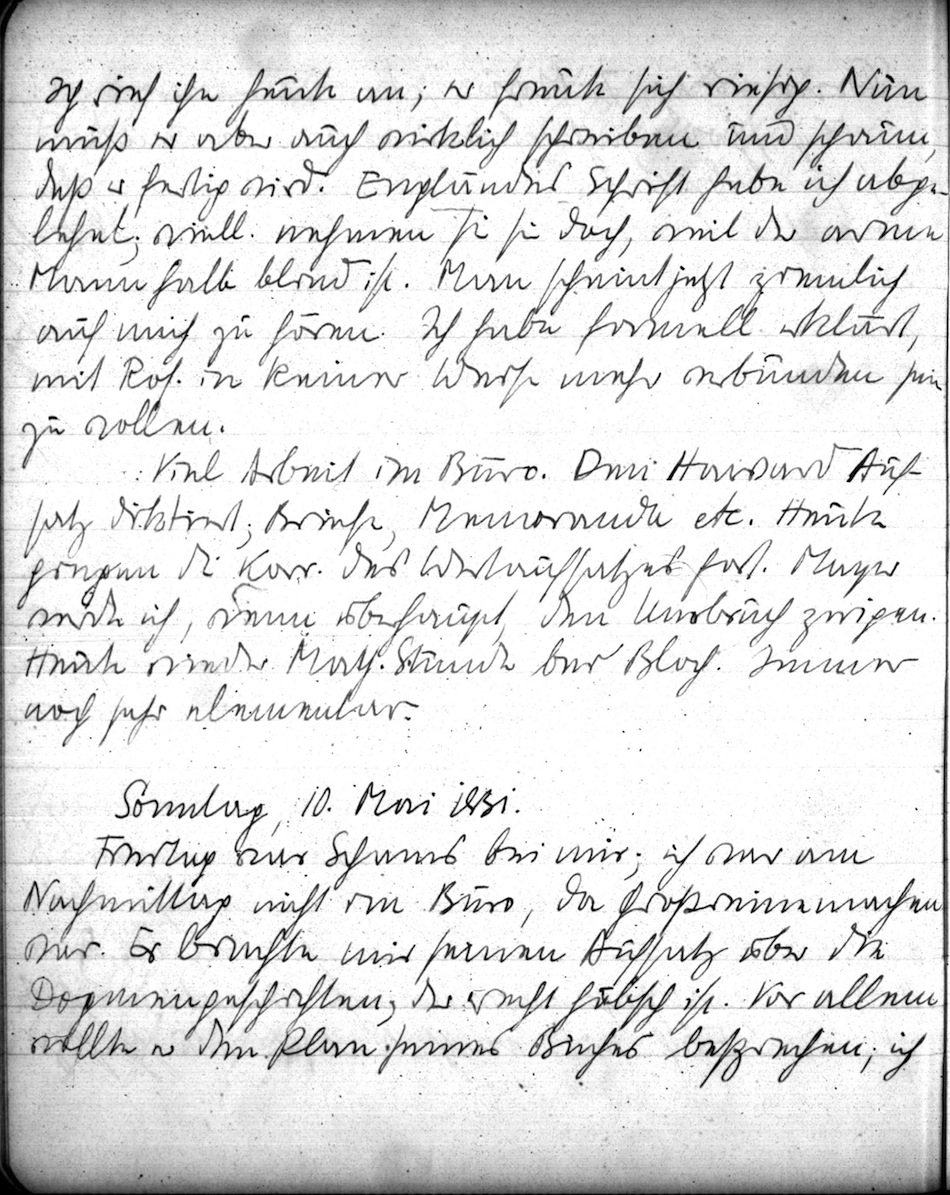 Ich rief ihn heute an; er freute sich riesig. Nun
muß er aber auch wirklich schreiben und schauen,
daß er fertig wird. Engländers Schrift habe ich abge-
lehnt; viell. nehmen sie sie doch, weil der arme
Mann halb blind ist. Man scheint jetzt ziemlich
auf mich zu hören. Ich habe formell erklärt,
mit Ros. in keiner Weise mehr verbunden sein
zu wollen.
Viel Arbeit im Büro. Den Harvard Auf-
satz diktiert; Briefe, Memoranda etc. Heute
gingen die Korr. des Wertaufsatzes fort. Mayer
werde ich, wenn überhaupt, den Umbruch zeigen.
Heute wieder Math. Stunde bei Bloch. Immer
noch sehr elementar.
Sonntag, 10. Mai 1931.
Freitag war Schams bei mir; ich war am
Nachmittag nicht im Büro, da Großreinemachen
war. Er brachte mir seinen Aufsatz über die
Dogmengeschichten, der recht hübsch ist. Vor allem
wollte er den Plan seines Buches besprechen; ich